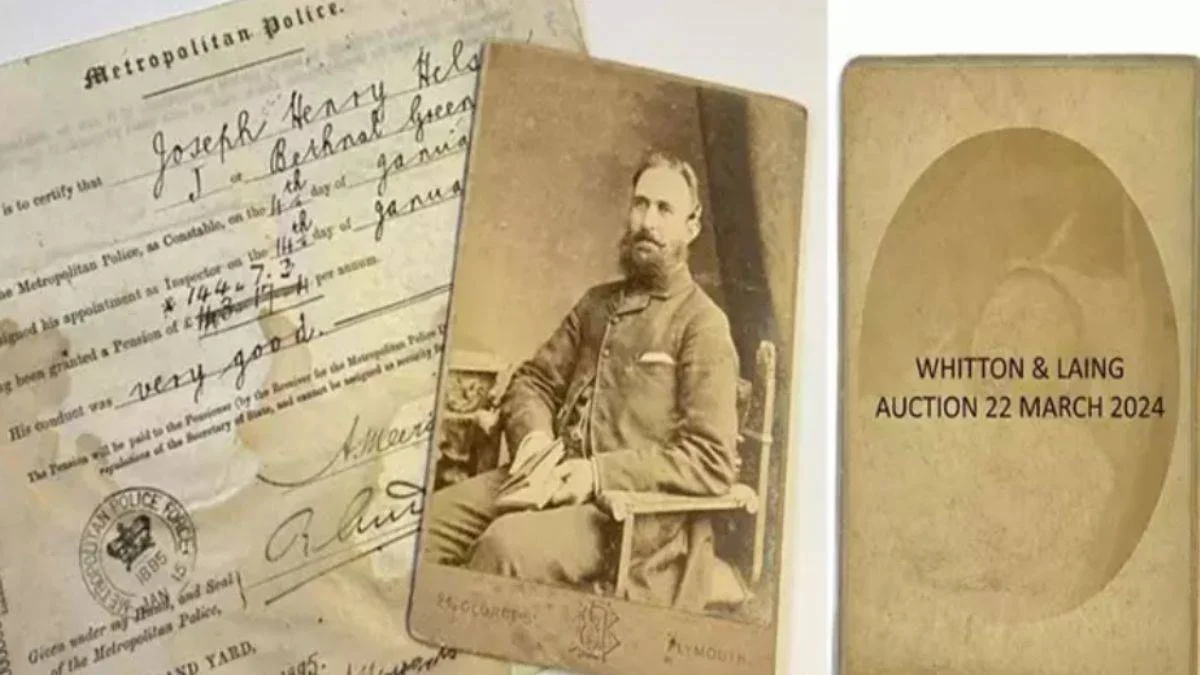 Metropolitan Police.
is to certify that Joseph Henry Hels
J or Bethnal Green
Metropolitan Police, as Constable, on the 4th day of janua
signed his appointment as Inspector on the 14th day of janua
been granted a Pension of £ 144 " 7. 3 per annum.
His conduct was very good.
The Pension will be paid to the Pensioner (by the Receiver for the Metropolitan Police
regulations of the Secretary of State, and cannot be assigned as security
METROPOLITAN POLICE FORCE
1895
JAN 15
Given under my Hand, and Seal
of the Metropolitan Police,
AND YARD,
1895.
24, GEORGE ST. PLYMOUTH
WHITTON & LAING
AUCTION 22 MARCH 2024